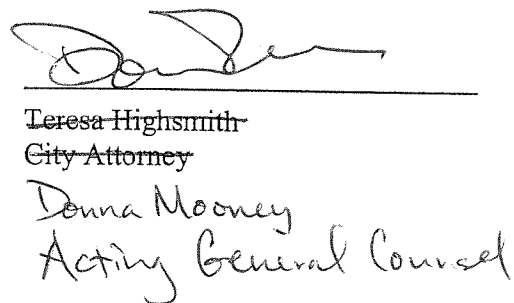 Teresa Highsmith
City Attorney
Donna Mooney
Acting General Counsel